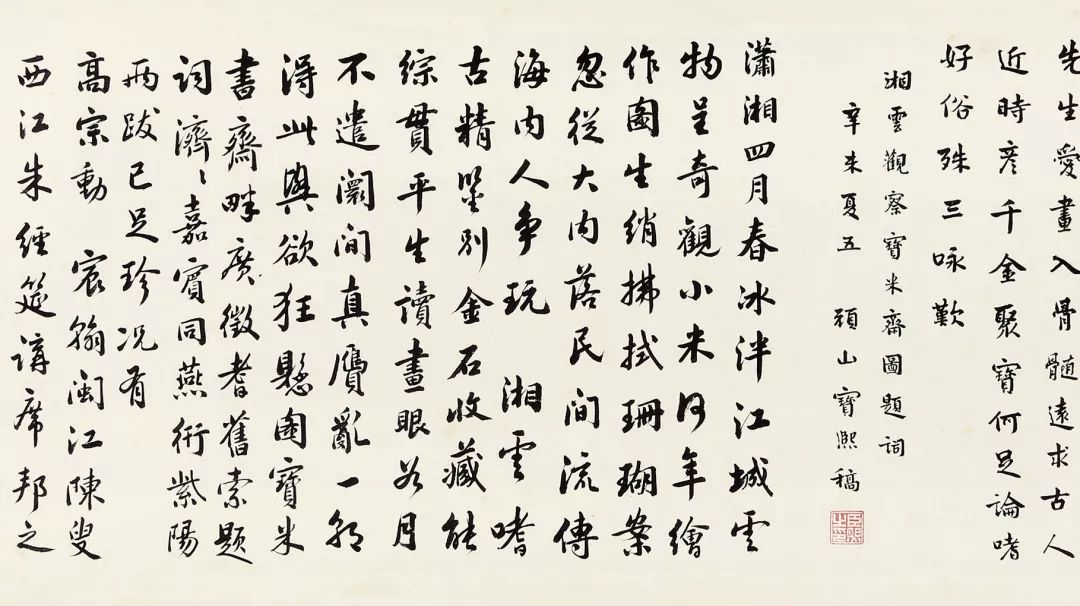 先生愛畫入骨髓遠求古人
近時彥千金聚寶何足論嗜
好俗殊三咏歎
湘雲觀察寶米齋圖題詞
辛未夏五 頑山寶熙稿
瀟湘四月春冰泮江城雲
物呈奇觀小米何年繪
作圖生綃拂拭珊瑚案
忽從大內落民間流傳
海內人爭玩 湘雲嗜
古精鑒別金石收藏能
綜貫平生讀畫眼如月
不遣闤間真贋亂一朝
得此興欲狂懸圖寶米
書齋畔廣徵耆舊索題
詞濟〻嘉賓同燕衎紫陽
兩跋已足珍况有
高宗動 宸翰閩江陳叟
西江朱經筵講席邦之